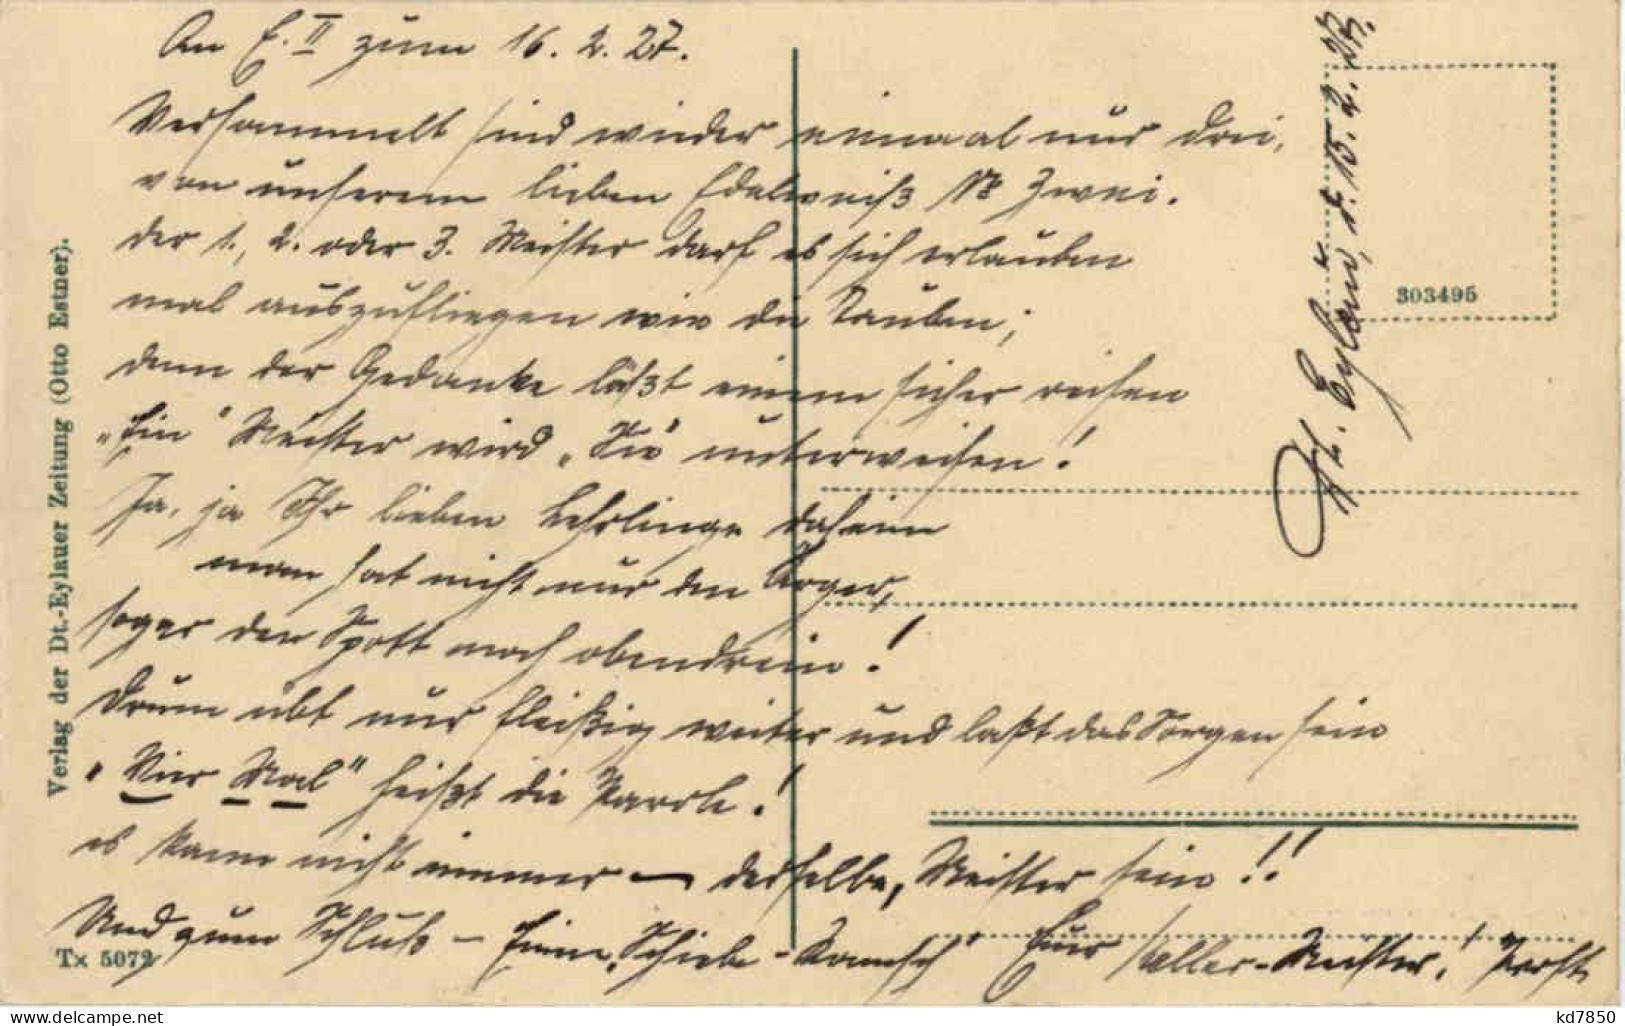 An E. II zum 16. 2. 27.
Versammelt sind wieder einmal nur drei,
von unserem lieben Edelweiß № Zwei.
der 1., 2. oder 3. Meister darf es sich erlauben
mal auszufliegen wie die Tauben;
denn der Gedanke läßt einem sicher reisen
„Ein" Meister wird „Sie" unterweisen!
Ja, ja Ihr lieben Lehrlinge daheim
man hat nicht nur den Ärger,
sogar den Spott noch obendrein!
Drum übt nur fleißig weiter und laßt das Sorgen sein
„Vier Mal" heißt die Parole!
es kann nicht immer — derselbe, Meister sein!!
Und zum Schluß – Eine „Schiebe-
Euer Keller-Meister!
Dt. Eylau, d. 15. 2. 27.
303495
Verlag der Dt.-Eylauer Zeitung (Otto Estner).
Tx 5072
kd7850